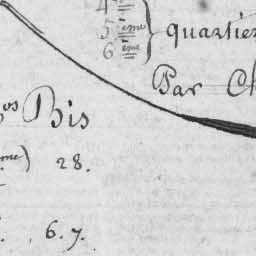 4
5 eme
6 eme } quartier
Par Ch
os Bis
me) 28.
. 6.7.